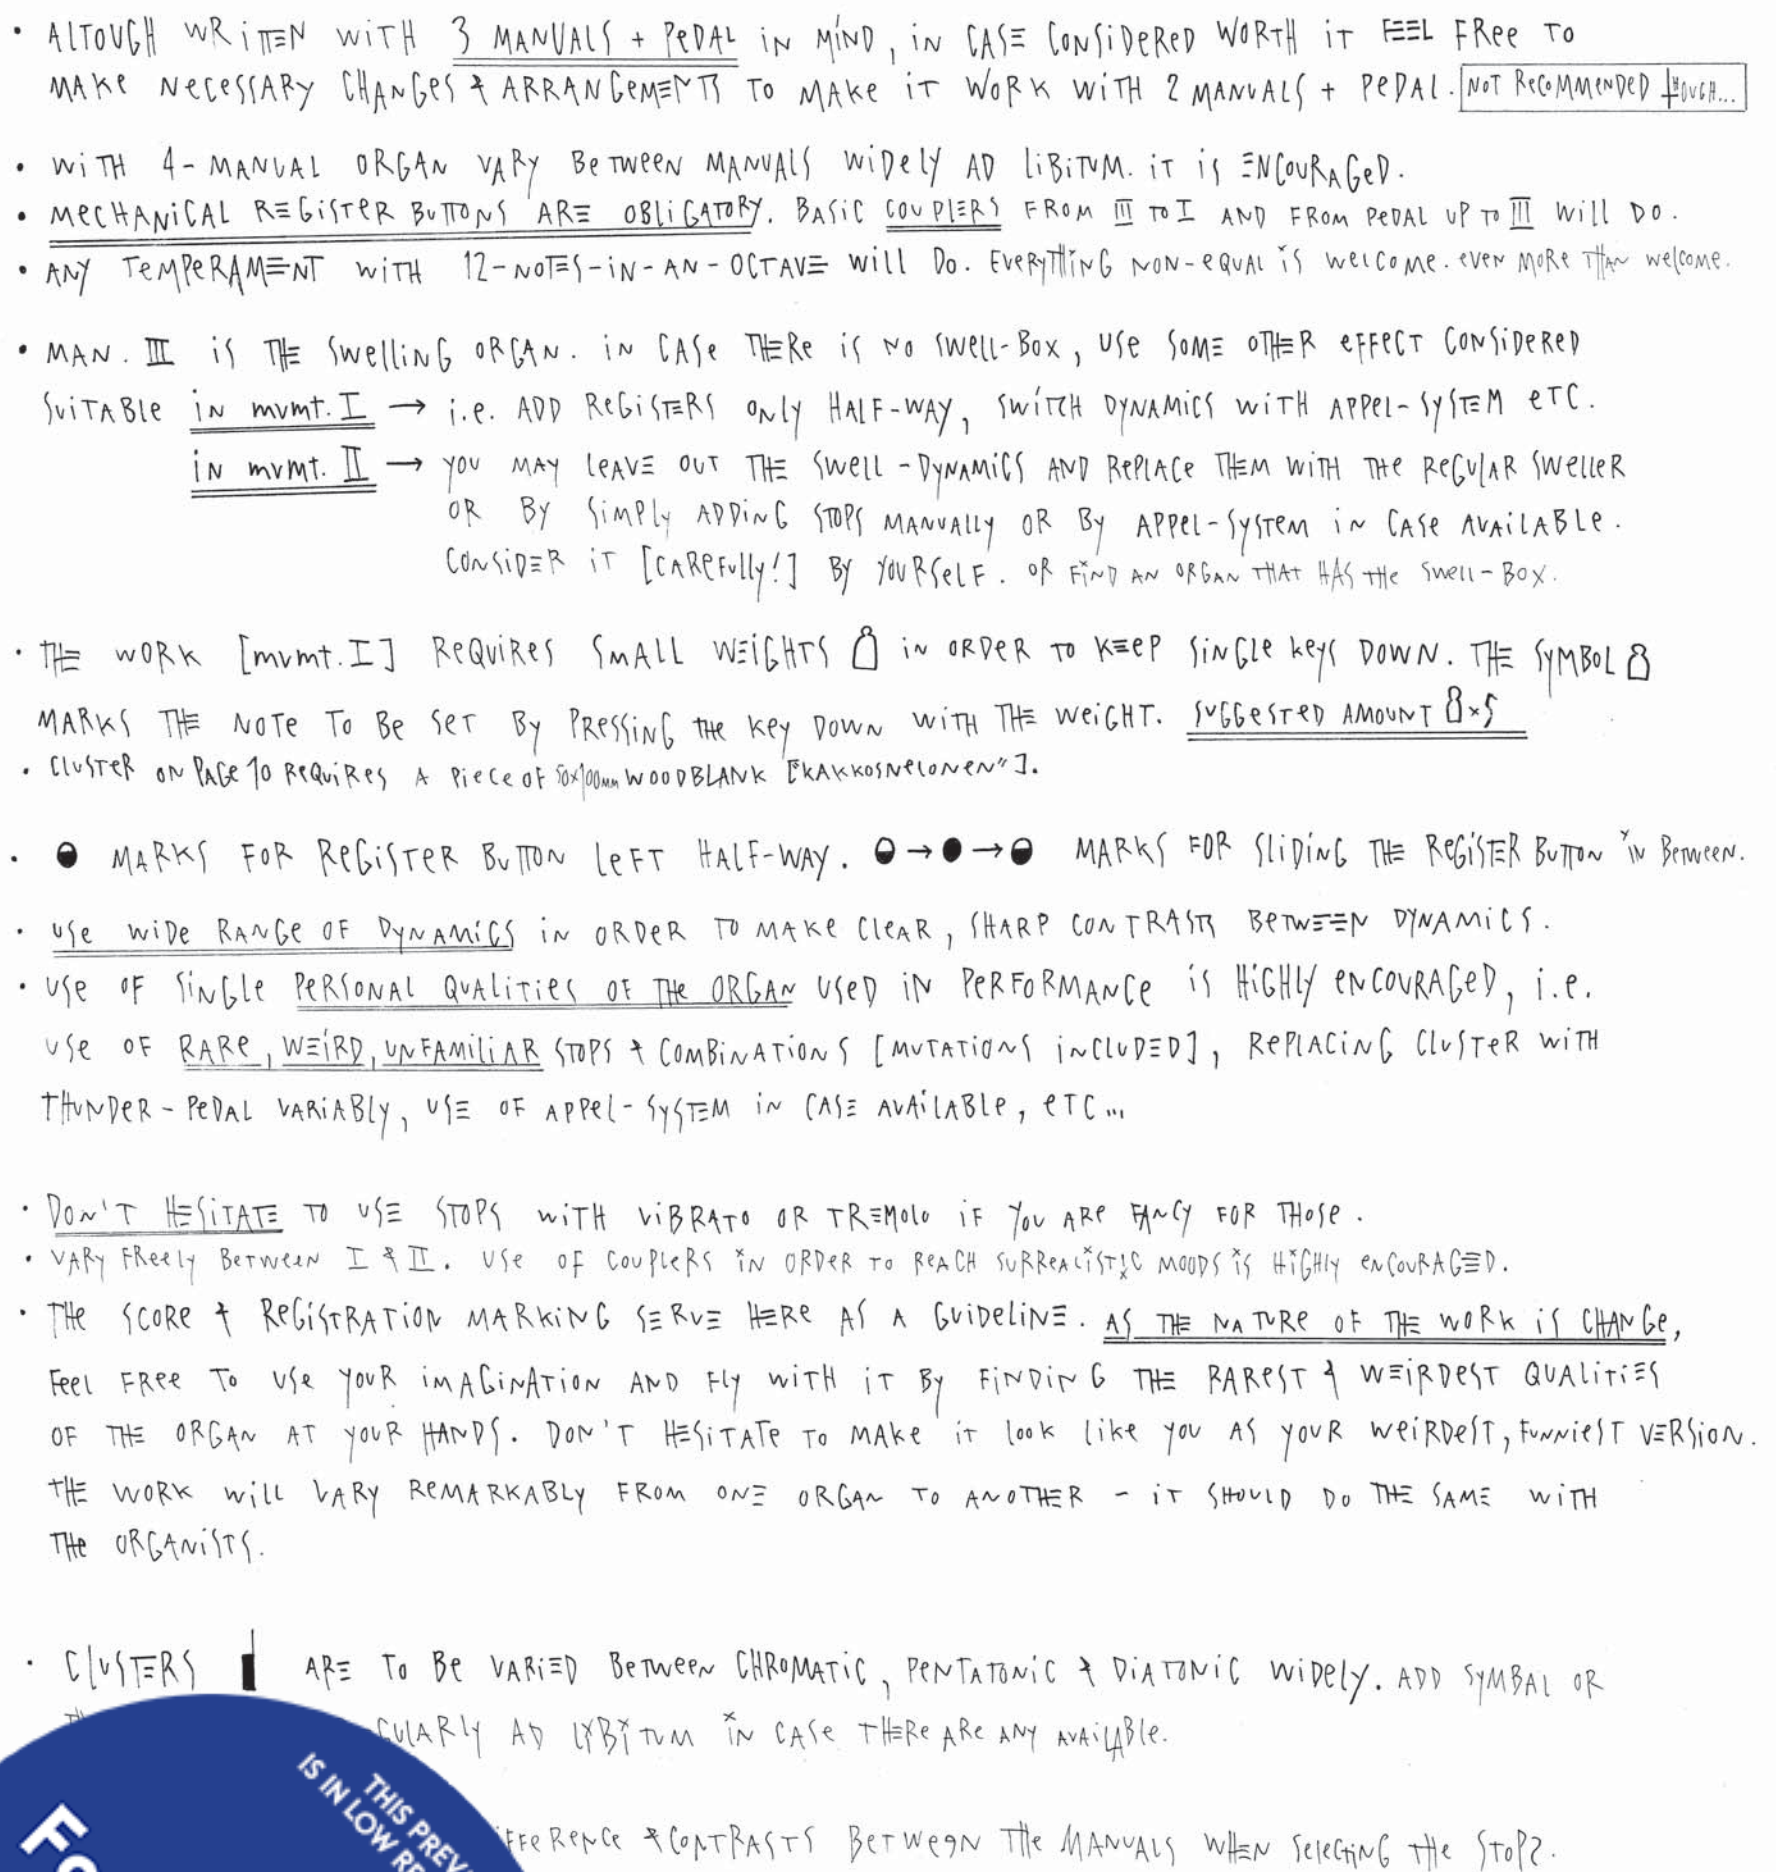 • ALTOUGH WRITTEN WITH 3 MANUALS + PEDAL IN MIND, IN CASE CONSIDERED WORTH IT FEEL FREE TO
MAKE NECESSARY CHANGES & ARRANGEMENTS TO MAKE IT WORK WITH 2 MANUALS + PEDAL. NOT RECOMMENDED THOUGH...
• WITH 4-MANUAL ORGAN VARY BETWEEN MANUALS WIDELY AD LIBITUM. IT IS ENCOURAGED.
• MECHANICAL REGISTER BUTTONS ARE OBLIGATORY. BASIC COUPLERS FROM III TO I AND FROM PEDAL UP TO III WILL DO.
• ANY TEMPERAMENT WITH 12-NOTES-IN-AN-OCTAVE WILL DO. EVERYTHING NON-EQUAL IS WELCOME. EVEN MORE THAN WELCOME.
• MAN. III IS THE SWELLING ORGAN. IN CASE THERE IS NO SWELL-BOX, USE SOME OTHER EFFECT CONSIDERED
SUITABLE in mvmt. I → i.e. ADD REGISTERS ONLY HALF-WAY, SWITCH DYNAMICS WITH APPEL-SYSTEM ETC.
in mvmt. II → YOU MAY LEAVE OUT THE SWELL-DYNAMICS AND REPLACE THEM WITH THE REGULAR SWELLER
OR BY SIMPLY ADDING STOPS MANUALLY OR BY APPEL-SYSTEM IN CASE AVAILABLE.
CONSIDER IT [CAREFULLY!] BY YOURSELF. OR FIND AN ORGAN THAT HAS THE SWELL-BOX.
• THE WORK [mvmt. I] REQUIRES SMALL WEIGHTS IN ORDER TO KEEP SINGLE KEYS DOWN. THE SYMBOL
MARKS THE NOTE TO BE SET BY PRESSING THE KEY DOWN WITH THE WEIGHT. SUGGESTED AMOUNT ×5
• CLUSTER ON PAGE 10 REQUIRES A PIECE OF 50x100mm WOODBLANK ["KAKKOSNELONEN"].
• ◒ MARKS FOR REGISTER BUTTON LEFT HALF-WAY. ◒→●→◒ MARKS FOR SLIDING THE REGISTER BUTTON IN BETWEEN.
• USE WIDE RANGE OF DYNAMICS IN ORDER TO MAKE CLEAR, SHARP CONTRASTS BETWEEN DYNAMICS.
• USE OF SINGLE PERSONAL QUALITIES OF THE ORGAN USED IN PERFORMANCE IS HIGHLY ENCOURAGED, i.e.
USE OF RARE, WEIRD, UNFAMILIAR STOPS & COMBINATIONS [MUTATIONS INCLUDED], REPLACING CLUSTER WITH
THUNDER-PEDAL VARIABLY, USE OF APPEL-SYSTEM IN CASE AVAILABLE, ETC...
• DON'T HESITATE TO USE STOPS WITH VIBRATO OR TREMOLO IF YOU ARE FANCY FOR THOSE.
• VARY FREELY BETWEEN I & II. USE OF COUPLERS IN ORDER TO REACH SURREALISTIC MOODS IS HIGHLY ENCOURAGED.
• THE SCORE & REGISTRATION MARKING SERVE HERE AS A GUIDELINE. AS THE NATURE OF THE WORK IS CHANGE,
FEEL FREE TO USE YOUR IMAGINATION AND FLY WITH IT BY FINDING THE RAREST & WEIRDEST QUALITIES
OF THE ORGAN AT YOUR HANDS. DON'T HESITATE TO MAKE IT LOOK LIKE YOU AS YOUR WEIRDEST, FUNNIEST VERSION.
THE WORK WILL VARY REMARKABLY FROM ONE ORGAN TO ANOTHER - IT SHOULD DO THE SAME WITH
THE ORGANISTS.
• CLUSTERS ARE TO BE VARIED BETWEEN CHROMATIC, PENTATONIC & DIATONIC WIDELY. ADD SYMBAL OR
CULARLY AD LIBITUM IN CASE THERE ARE ANY AVAILABLE.
FFERENCE & CONTRASTS BETWEEN THE MANUALS WHEN SELECTING THE STOPS.
THIS PREV
IS IN LOW RE
Fo